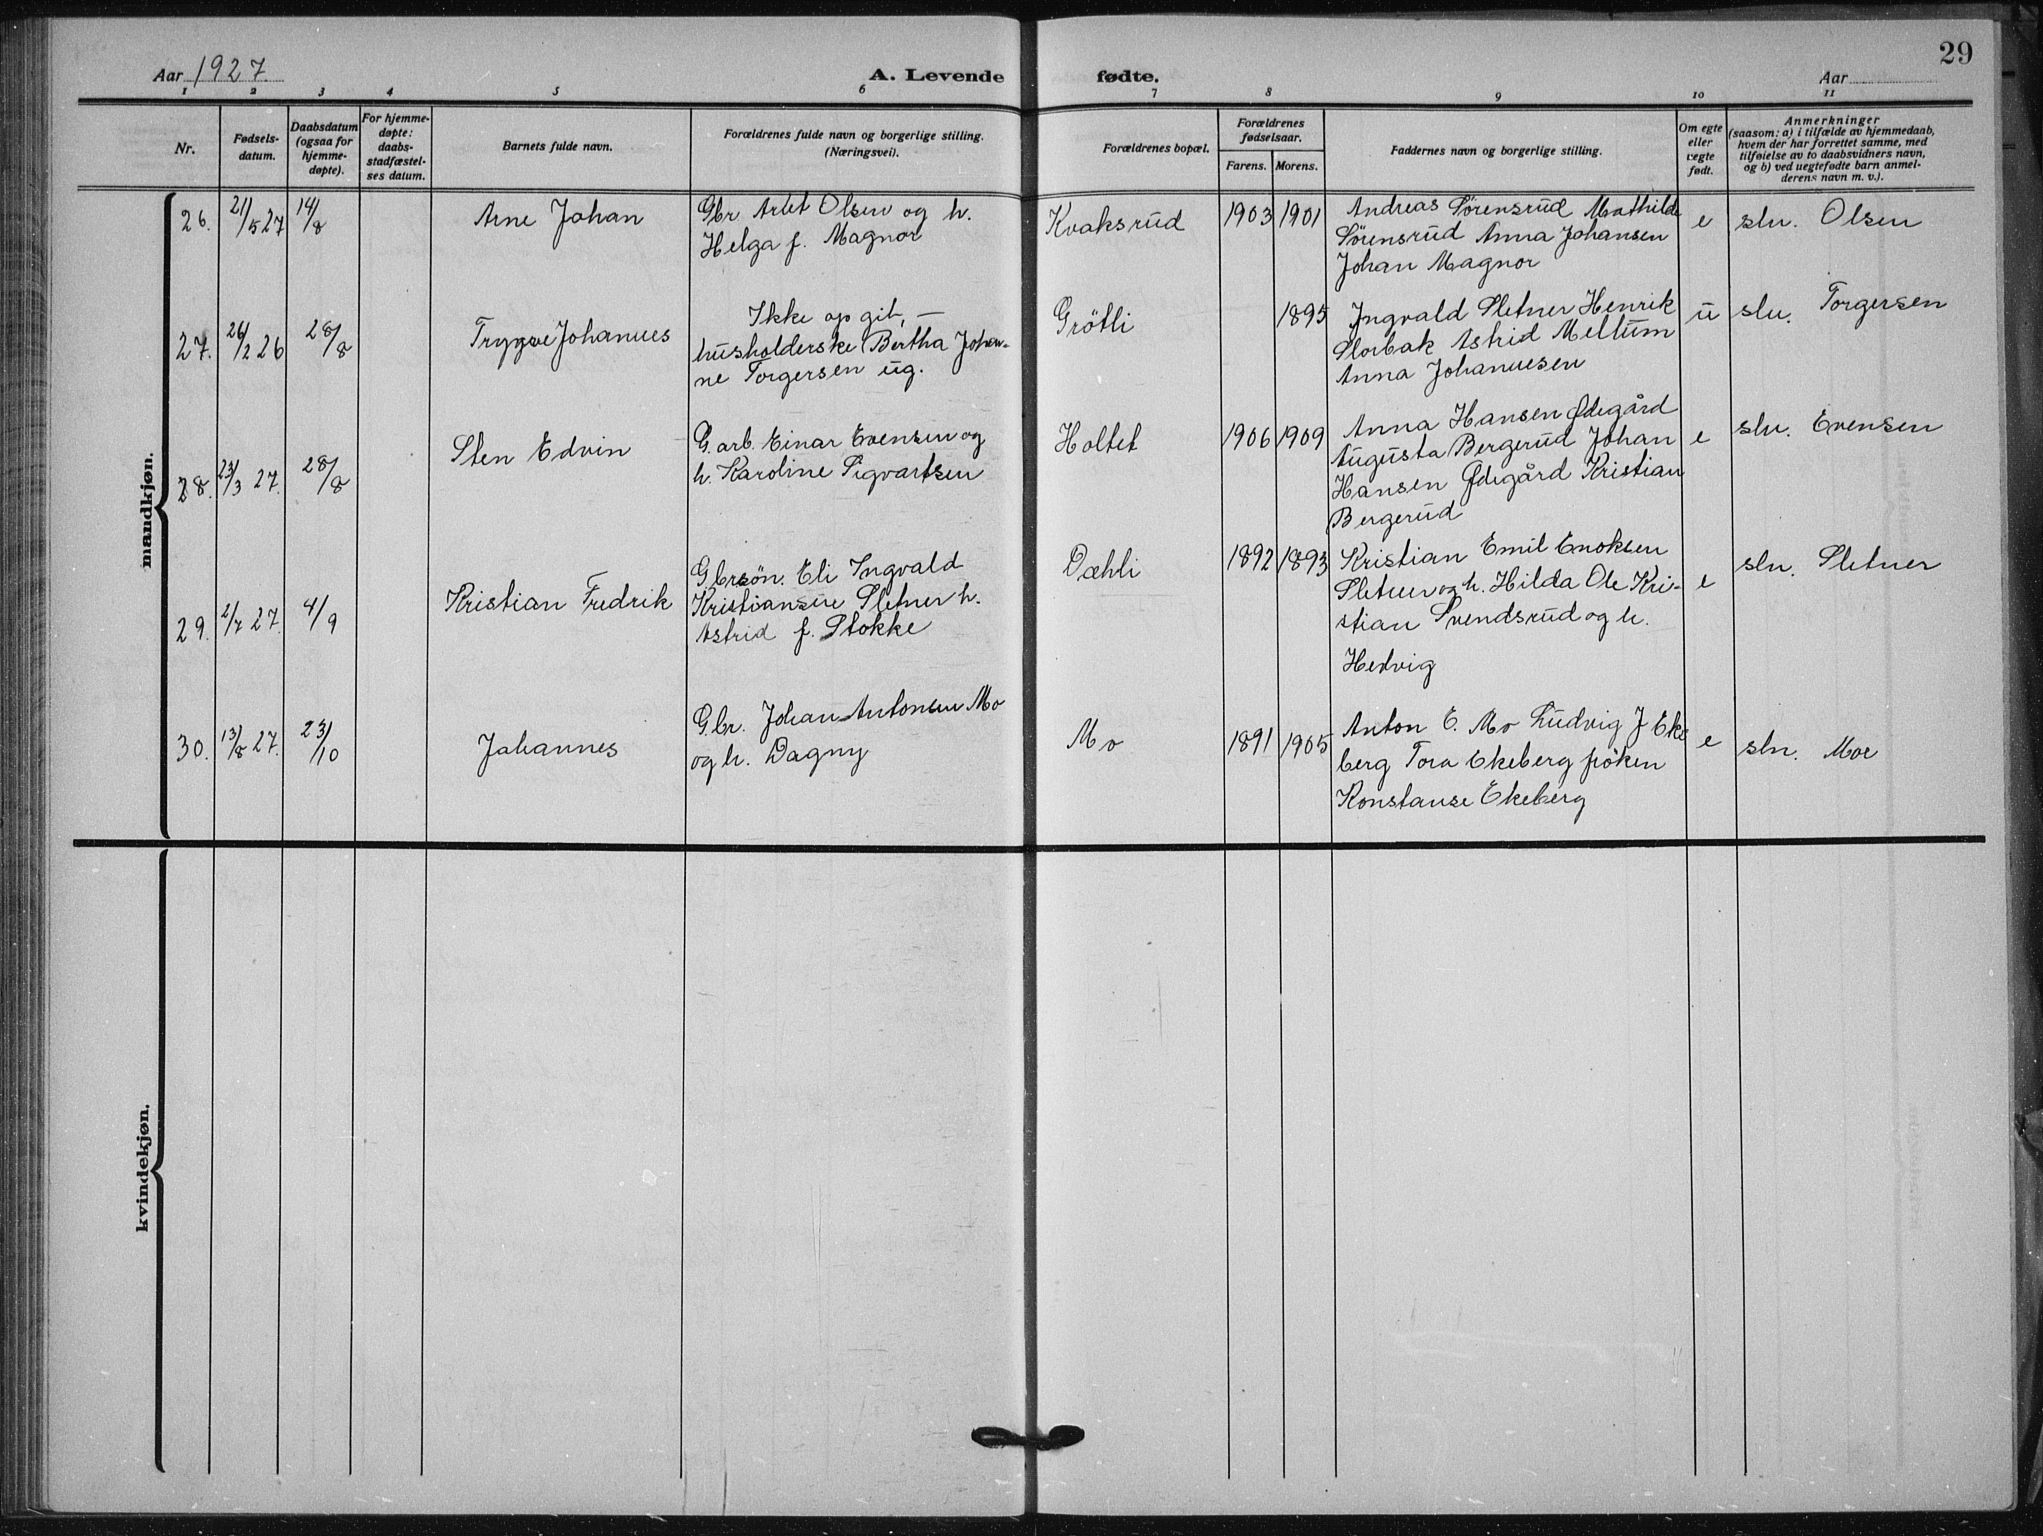 29
Aar 1927.
A. Levende fødte.
Aar
1 2 3 4 5 6 7 8 9 10 11
Nr.
Fødsels-
datum.
Daabsdatum
(ogsaa for
hjemme-
døpte).
For hjemme-
døpte:
daabs-
stadfæstel-
ses datum.
Barnets fulde navn.
Forældrenes fulde navn og borgerlige stilling.
(Næringsvei).
Forældrenes bopæl.
Forældrenes
fødselsaar.
Farens. Morens.
Faddernes navn og borgerlige stilling.
Om egte
eller
uegte
født.
Anmerkninger
(saasom: a) i tilfælde av hjemmedaab,
hvem der har forrettet samme, med
tilføielse av to daabsvidners navn,
og b) ved uegtefødte barn anmel-
derens navn m. v.).
mandkjøn.
26. 21/5 27 14/8
Arne Johan
Gbr Arlet Olsen og h.
Helga f. Magnor
Kvaksrud
1903 1901
Andreas Sörensrud Mathilde
Sörensrud Anna Johansen
Johan Magnor
e
sln. Olsen
27. 26/2 26 28/8
Trygve Johannes
Ikke op git, —
husholderske Bertha Johan-
ne Torgersen ug.
Grötli
1895
Ingvald Sletner Henrik
Storbak Astrid Mellum
Anna Johannesen
u
sln. Torgersen
28. 23/3 27. 28/8
Sten Edvin
G.arb. Einar Evensen og
h. Karoline Sigvartsen
Holtet
1906 1909
Anna Hansen Ødegård
Augusta Bergerud Johan
Hansen Ødegård Kristian
Bergerud
e
sln. Evensen
29. 2/7 27. 4/9
Kristian Fredrik
Gbrsön. Eli Ingvald
Kristiansen Sletner h.
Astrid f. Stokke
Dæhli
1892 1893
Kristian Emil Enoksen
Sletner og h. Hilda Ole Kri-
stian Svendsrud og h.
Hedvig
e
sln. Sletner
30. 13/8 27. 23/10
Johannes
Gbr. Johan Antonsen Mo
og h. Dagny
Mo
1891 1905
Anton E. Mo Ludvig J Eke
berg Tora Ekeberg fröken
Konstanse Ekeberg
e
sln. Moe
kvindekjøn.